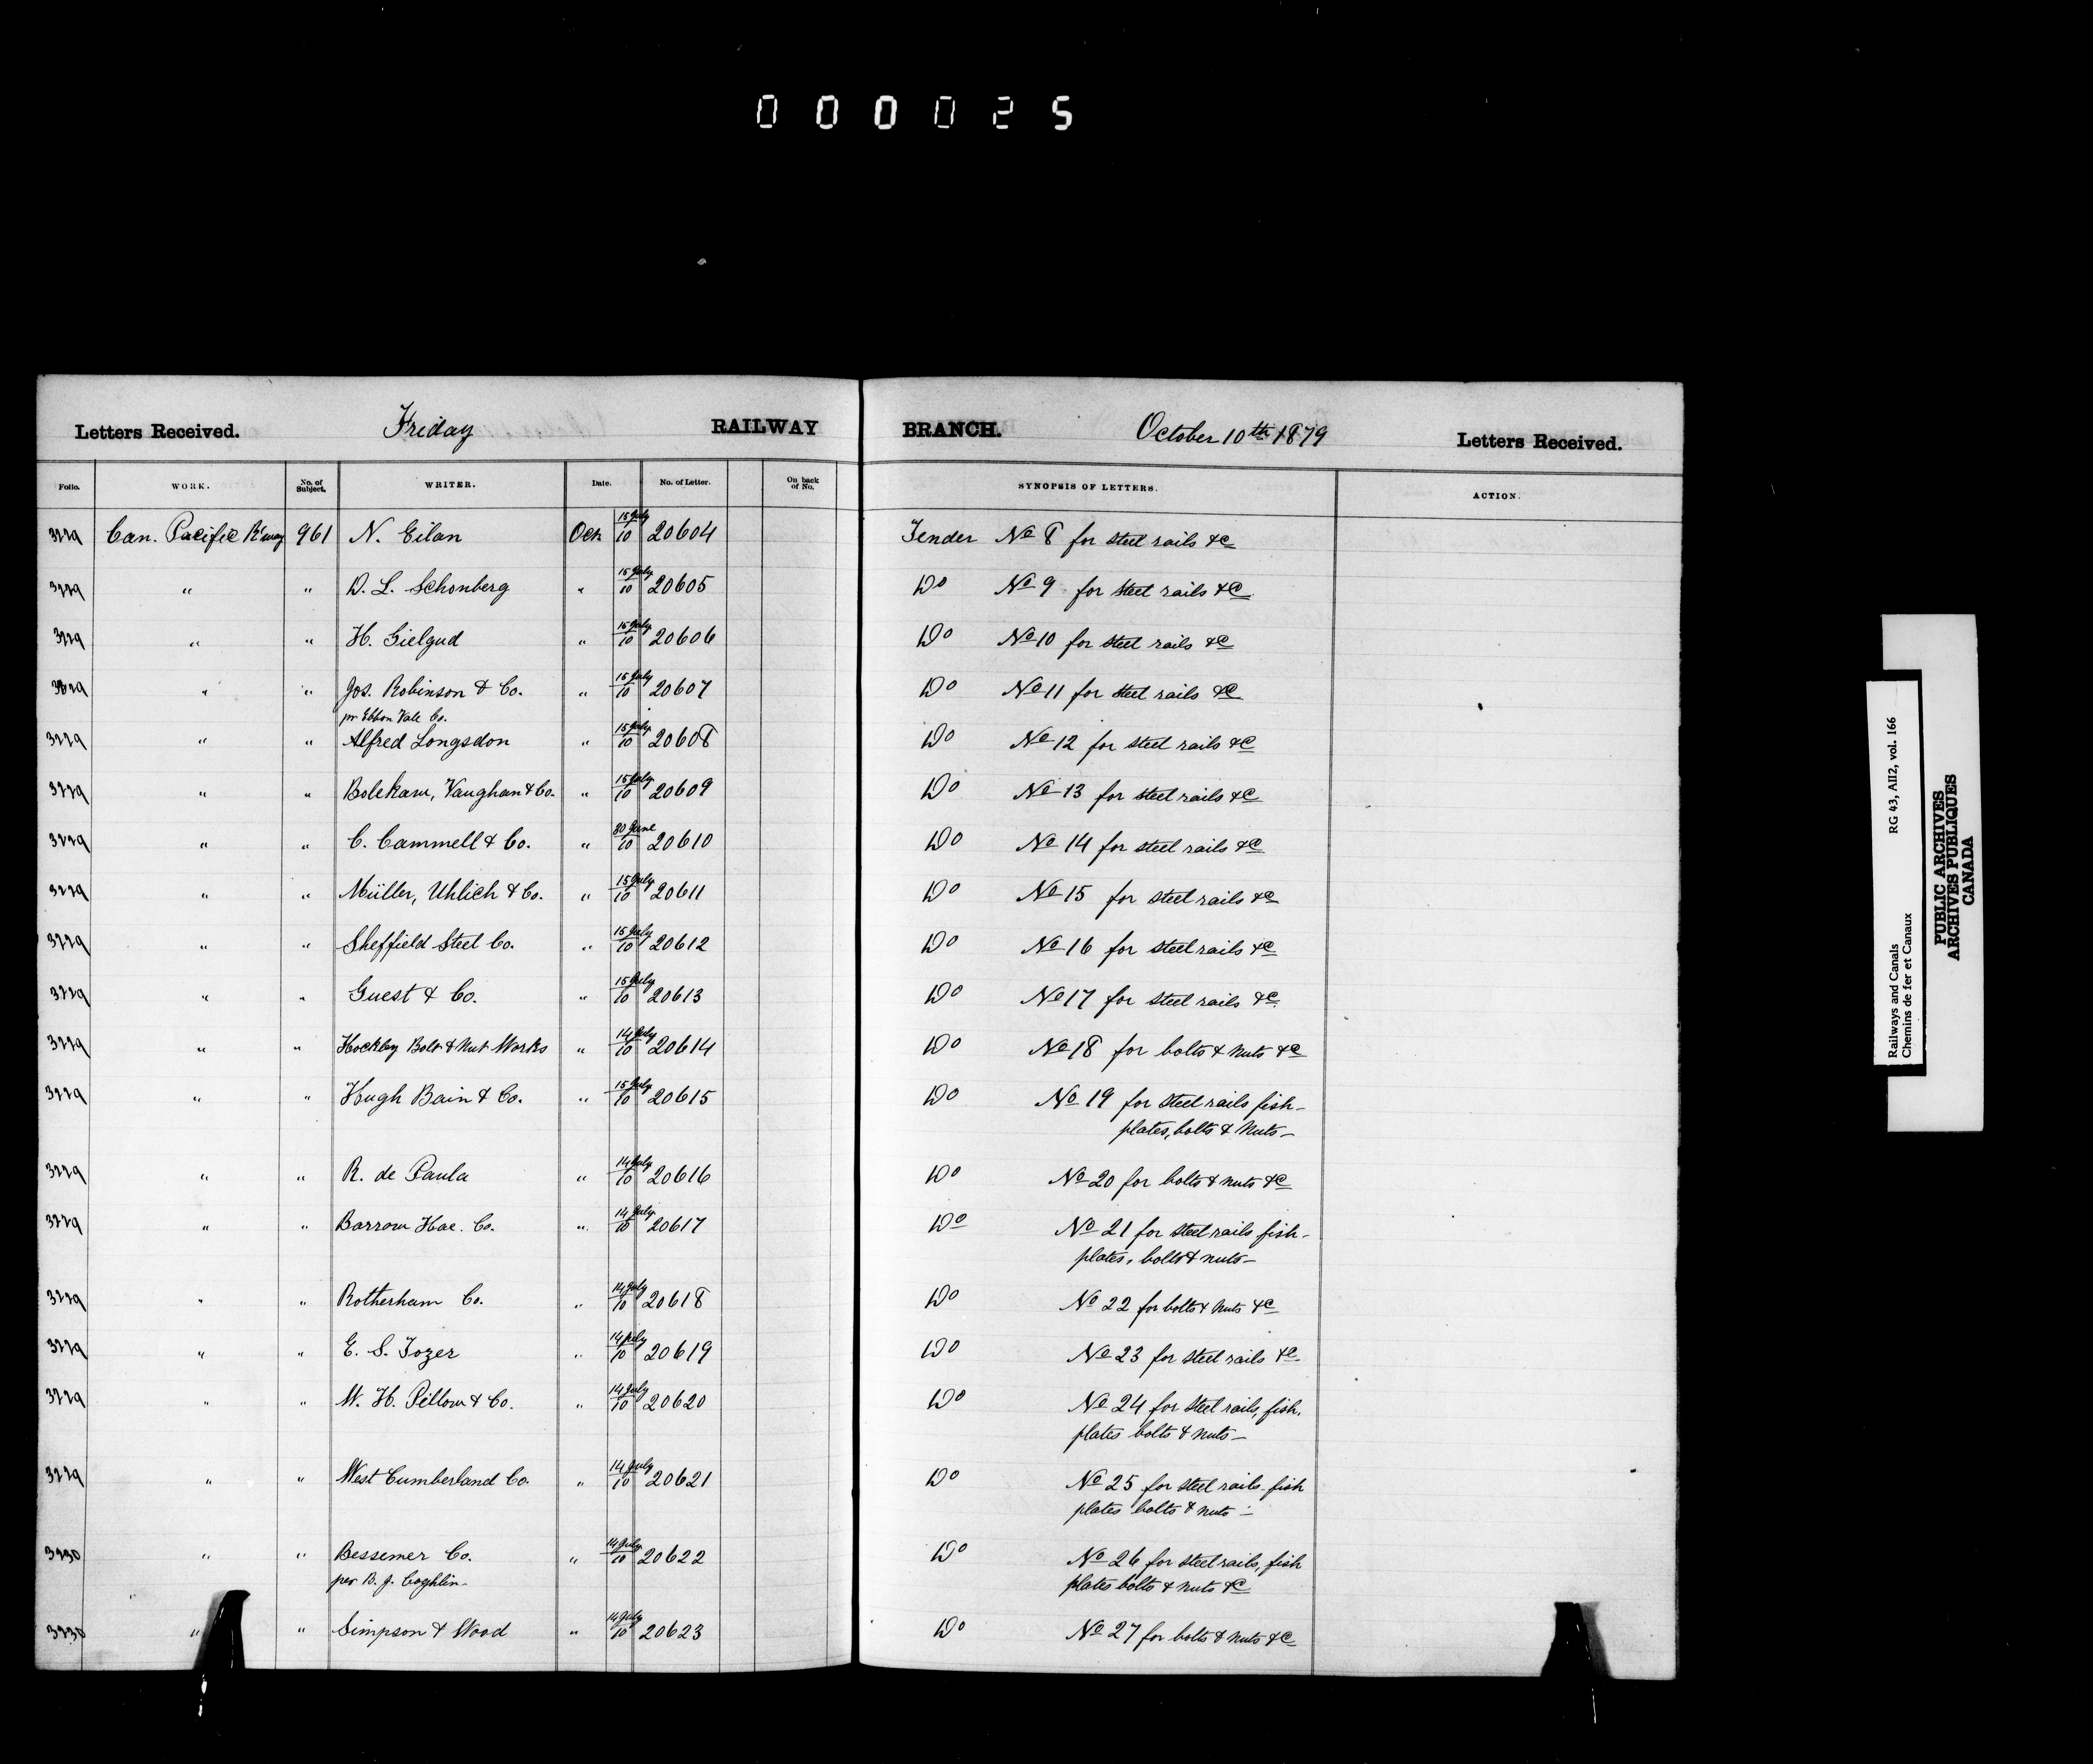 000025
Letters Received. Friday RAILWAY BRANCH. October 10th 1879 Letters Received.
Folio. WORK. No. of Subject. WRITER. Date. No. of Letter. On back of No. SYNOPSIS OF LETTERS. ACTION.
3229 Can. Pacific R'way 961 N. Eilan Oct 15 July/10 20604 Tender No 8 for steel rails &c
3229 " " D. L. Schonberg " 15 July/10 20605 Do No 9 for steel rails &c
3229 " " H. Gielgud " 15 July/10 20606 Do No 10 for steel rails &c
3229 " " Jos. Robinson & Co. " 15 July/10 20607 Do No 11 for steel rails &c
pr Ebbon Vale Co.
3229 " " Alfred Longsdon " 15 July/10 20608 Do No 12 for steel rails &c
3229 " " Bolekaw, Vaughan & Co. " 15 July/10 20609 Do No 13 for steel rails &c
3229 " " C. Cammell & Co. " 30 June/10 20610 Do No 14 for steel rails &c
3229 " " Müller, Uhlich & Co. " 15 July/10 20611 Do No 15 for steel rails &c
3229 " " Sheffield Steel Co. " 15 July/10 20612 Do No 16 for steel rails &c
3229 " " Guest & Co. " 15 July/10 20613 Do No 17 for steel rails &c
3229 " " Hockley Bolt & Nut Works " 14 July/10 20614 Do No 18 for bolts & nuts &c
3229 " " Hugh Bain & Co. " 15 July/10 20615 Do No 19 for steel rails fish-
plates, bolts & nuts—
3229 " " R. de Paula " 14 July/10 20616 Do No 20 for bolts & nuts &c
3229 " " Barrow Hae. Co. " 14 July/10 20617 Do No 21 for steel rails fish-
plates, bolts & nuts—
3229 " " Rotherham Co. " 14 July/10 20618 Do No 22 for bolts & nuts &c
3229 " " E. S. Tozer " 14 July/10 20619 Do No 23 for steel rails &c
3229 " " W. H. Pillow & Co. " 14 July/10 20620 Do No 24 for steel rails, fish.
plates bolts & nuts—
3229 " " West Cumberland Co. " 14 July/10 20621 Do No 25 for steel rails fish
plates bolts & nuts—
3230 " " Bessemer Co. " 14 July/10 20622 Do No 26 for steel rails, fish
per B. J. Coghlin- plates bolts & nuts &c
3230 " " Simpson & Wood " 14 July/10 20623 Do No 27 for bolts & nuts &c
Railways and Canals RG 43, AII2, vol. 166
Chemins de fer et Canaux
PUBLIC ARCHIVES
ARCHIVES PUBLIQUES
CANADA